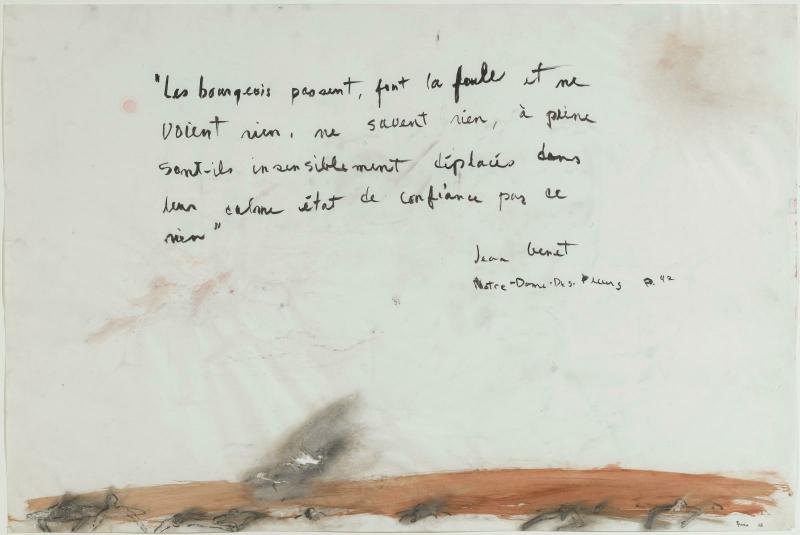 "Les bourgeois passent, font la foule et ne
voient rien, ne savent rien, à peine
sont-ils insensiblement déplacés dans
leur calme état de confiance par ce
rien"
Jean Genet
Notre-Dame-Des-Fleurs p. 42